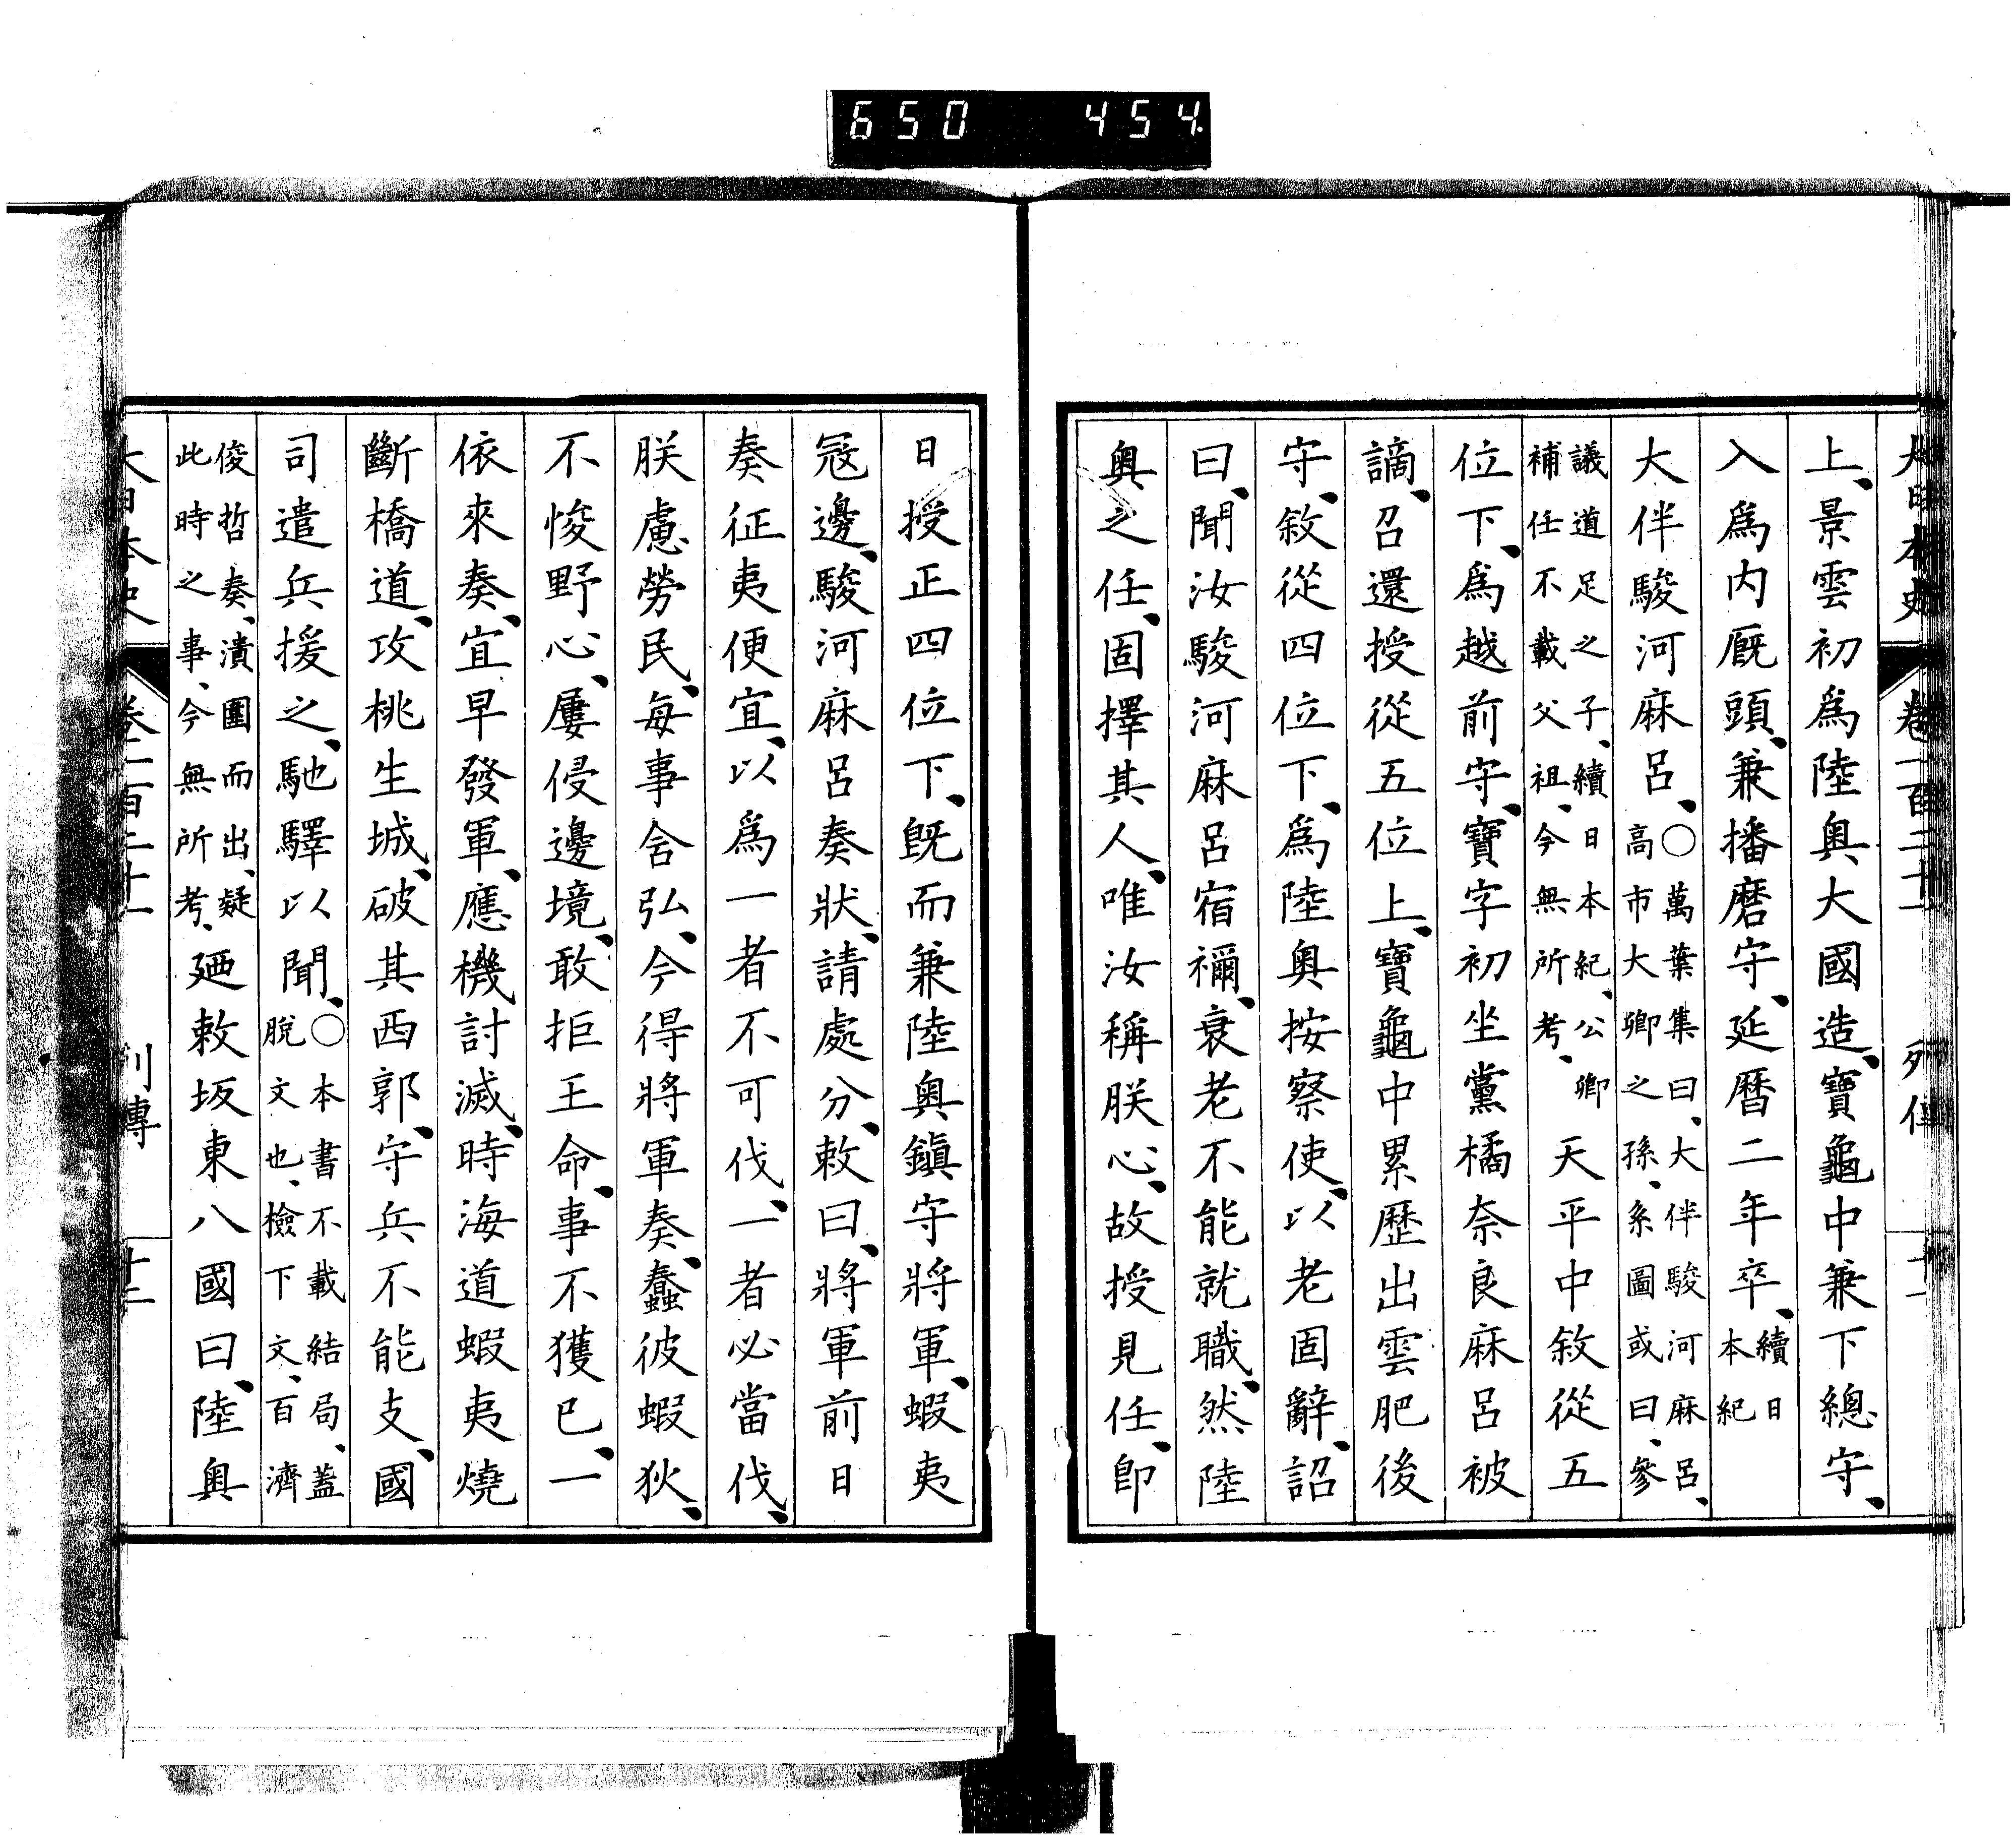 650 454
大日本史 卷一百二十一 列傳 十一
上、景雲初爲陸奥大國造、寶龜中兼下總守、
入爲内厩頭、兼播磨守、延曆二年卒、續日本紀
大伴駿河麻呂、○萬葉集曰、大伴駿河麻呂、高市大卿之孫、系圖或曰、參
議道足之子、續日本紀、公卿補任不載父祖、今無所考、天平中敘從五
位下、爲越前守、寶字初坐黨橘奈良麻呂被
謫、召還授從五位上、寶龜中累歷出雲肥後
守、敘從四位下、爲陸奥按察使、以老固辭、詔
曰、聞汝駿河麻呂宿禰、衰老不能就職、然陸
奥之任、固擇其人、唯汝稱朕心、故授見任、卽
日授正四位下、旣而兼陸奥鎭守將軍、蝦夷
冦邊、駿河麻呂奏狀、請處分、敕曰、將軍前日
奏征夷便宜、以爲一者不可伐、一者必當伐、
朕慮勞民、每事含弘、今得將軍奏、蠢彼蝦狄、
不悛野心、屢侵邊境、敢拒王命、事不獲已、一
依來奏、宜早發軍、應機討滅、時海道蝦夷燒
斷橋道、攻桃生城、破其西郭、守兵不能支、國
司遣兵援之、馳驛以聞、○本書不載結局、蓋脫文也、檢下文、百濟
俊哲奏、潰圍而出、疑此時之事、今無所考、廼敕坂東八國曰、陸奥
大日本史 卷一百二十一 列傳 十二